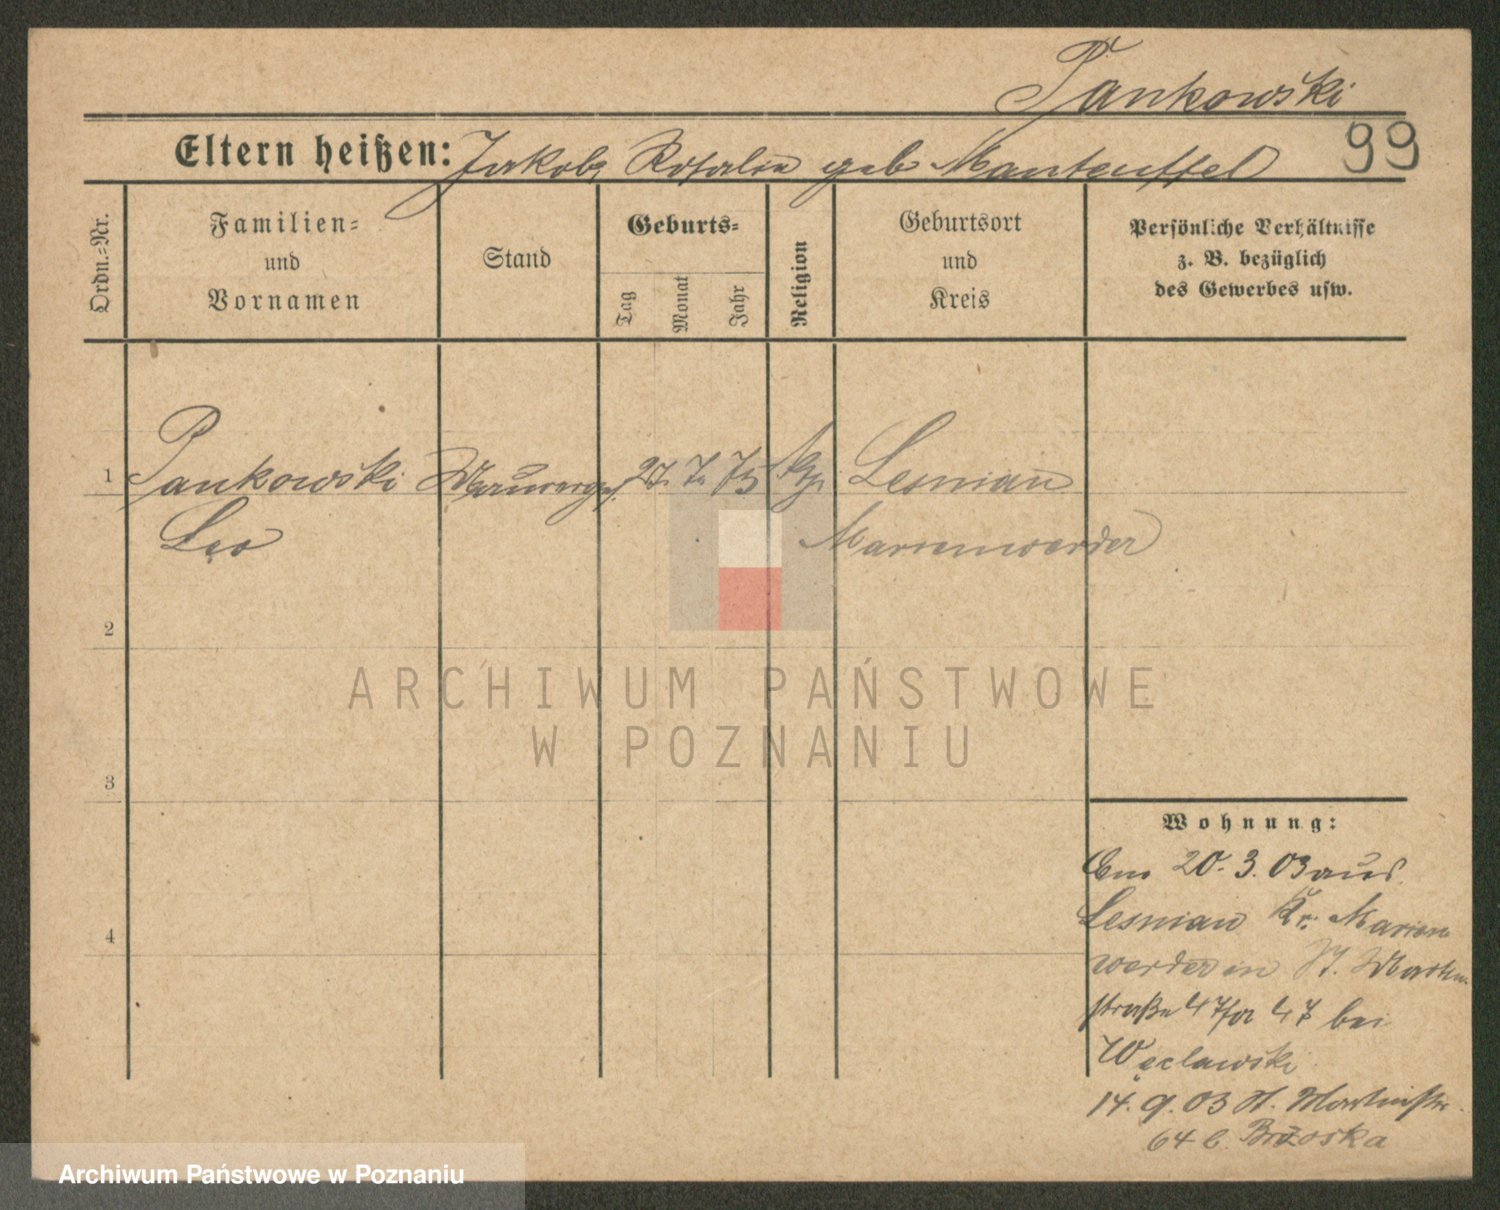 Pankowski
99
Eltern heißen: Jakob, Rosalie geb Manteuffel
Ordn.-Nr.
Familien-
und
Vornamen
Stand
Geburts-
Tag
Monat
Jahr
Religion
Geburtsort
und
Kreis
Persönliche Verhältnisse
z. B. bezüglich
des Gewerbes usw.
1 Pankowski Maurerges. 27. 7. 75 Lesnian
Leo Marienwerder
2
ARCHIWUM PAŃSTWOWE
W POZNANIU
3
Wohnung:
20. 3. 03 aus
Lesnian Kr. Marien
werder in St. Martin
straße 47 bei
Węclawski
14. 9. 03 St. Martinstr.
64 b. Brzoska
4
Archiwum Państwowe w Poznaniu